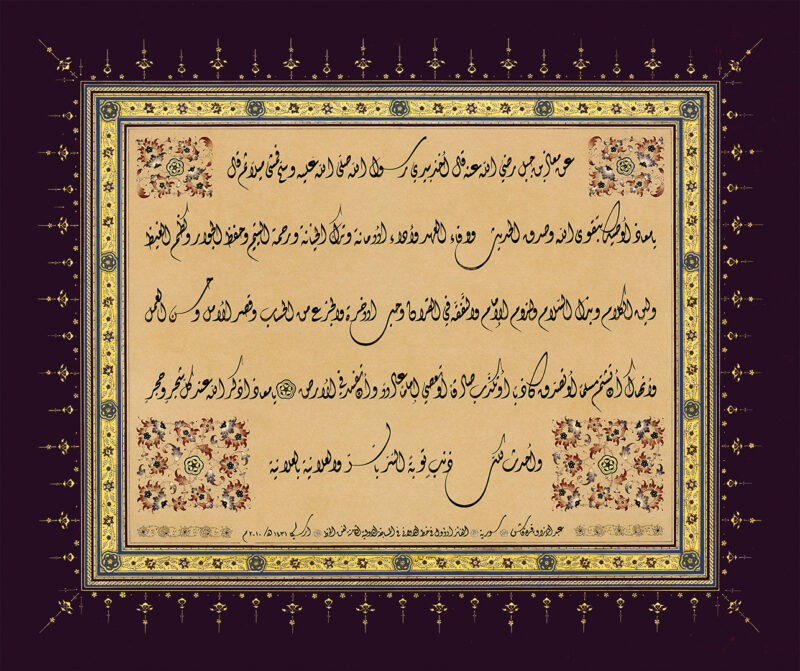 عن معاذ بن جبل رضي الله عنه قال أخذ بيدي رسول الله صلى الله عليه وسلم فمشى ميلا ثم قال
يا معاذ أوصيك بتقوى الله وصدق الحديث ووفاء العهد وأداء الأمانة وترك الخيانة ورحمة اليتيم وحفظ الجوار وكظم الغيظ
ولين الكلام وبذل السلام ولزوم الإمام والتفقه في القرآن وحب الآخرة والجزع من الحساب وقصر الأمل وحسن العمل
وأنهاك أن تشتم مسلما أو تصدق كاذبا أو تكذب صادقا أو تعصي إماما عادلا وأن تفسد في الأرض يا معاذ اذكر الله عند كل شجر وحجر
وأحدث لكل ذنب توبة السر بالسر والعلانية بالعلانية
عبد الرزاق قره قاش سورية في المسابقة الدولية لفن الخط ارسيكا ١٤٣١هـ ٢٠١٠م